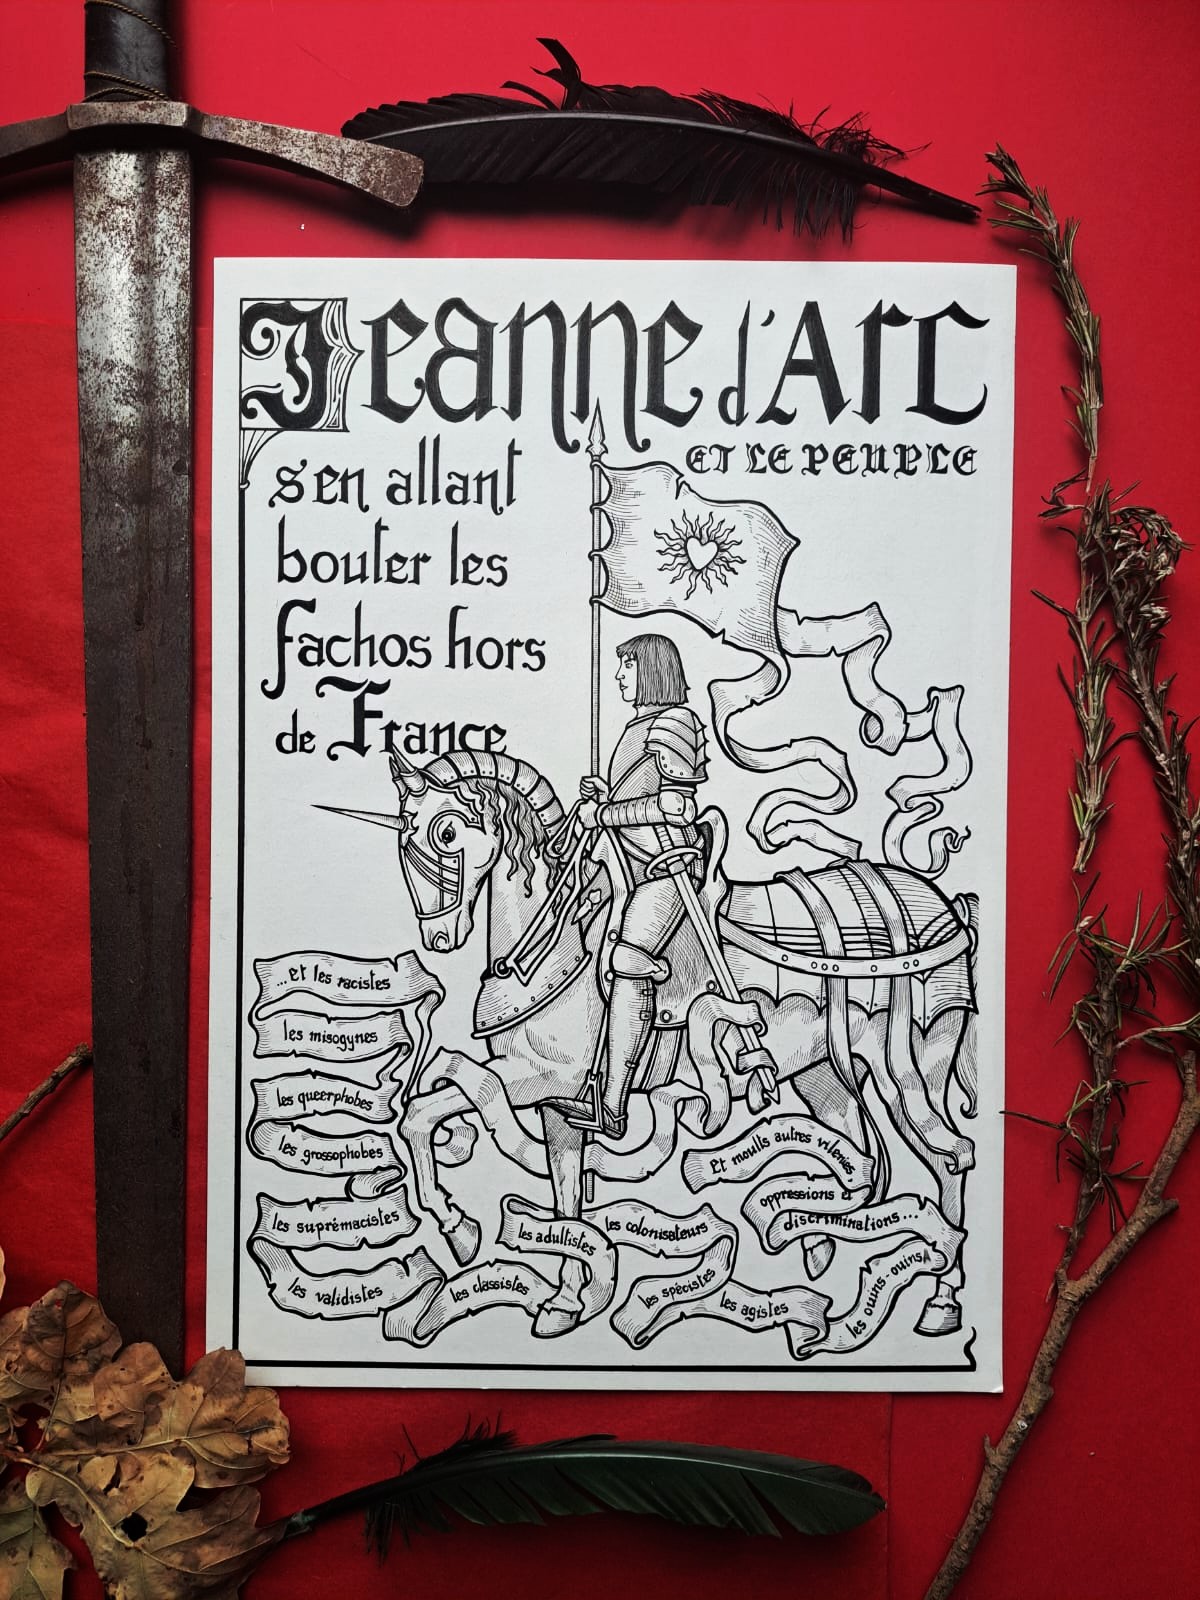 Jeanne d'Arc
ET LE PEUPLE
s'en allant
bouter les
fachos hors
de France
...et les racistes
les misogynes
les queerphobes
les grossophobes
les suprémacistes
les validistes
les classistes
les adultistes
les colonisateurs
les spécistes
les agistes
les ouins-ouins
Et moults autres vilenies,
oppressions et
discriminations...